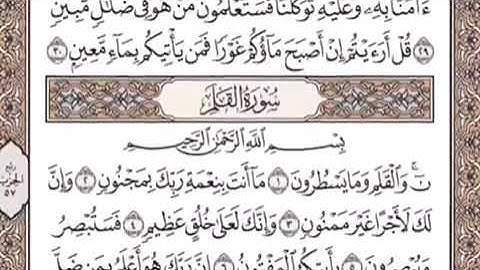 ءَامَنَّا بِهِۦ وَعَلَيْهِ تَوَكَّلْنَا فَسَتَعْلَمُونَ مَنْ هُوَ فِي ضَلَٰلٍ مُّبِينٍ
٢٩ قُلْ أَرَءَيْتُمْ إِنْ أَصْبَحَ مَآؤُكُمْ غَوْرًا فَمَن يَأْتِيكُم بِمَآءٍ مَّعِينٍ ٣٠
سُورَةُ القَلَمِ
بِسْمِ اللَّهِ الرَّحْمَٰنِ الرَّحِيمِ
نٓ وَٱلْقَلَمِ وَمَا يَسْطُرُونَ ١ مَآ أَنتَ بِنِعْمَةِ رَبِّكَ بِمَجْنُونٍ ٢ وَإِنَّ
لَكَ لَأَجْرًا غَيْرَ مَمْنُونٍ ٣ وَإِنَّكَ لَعَلَىٰ خُلُقٍ عَظِيمٍ ٤ فَسَتُبْصِرُ
وَيُبْصِرُونَ ٥ بِأَييِّكُمُ ٱلْمَفْتُونُ ٦ إِنَّ رَبَّكَ هُوَ أَعْلَمُ بِمَن ضَلَّ
ربع
الحزب
٥٧